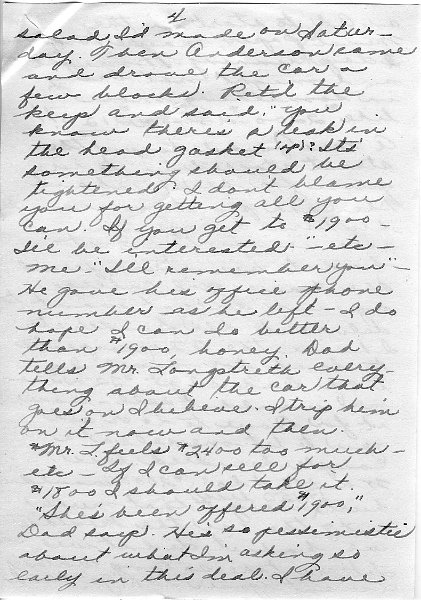 4
salad I'd made on Satur-
day. Then Anderson came
and drove the car a
few blocks. Ret'd the
keep and said, "You
know there's a leak in
the head gasket (sp)? Its
something should be
tightened. I don't blame
you for getting all you
can. If you get to $1900 -
I'll be interested" - etc -
me - "I'll remember you" -
He gave his office phone
number as he left - I do
hope I can do better
than $1900, honey. Dad
tells Mr. Longstreth every-
thing about the car that
goes on I believe. I trip him
on it now and then.
"Mr. L feels $2400 too much -
etc - If I can sell for
$1800 I should take it.
"She's been offered $1900,"
Dad says. He's so pessimistic
about what I'm asking so
early in this deal. I have